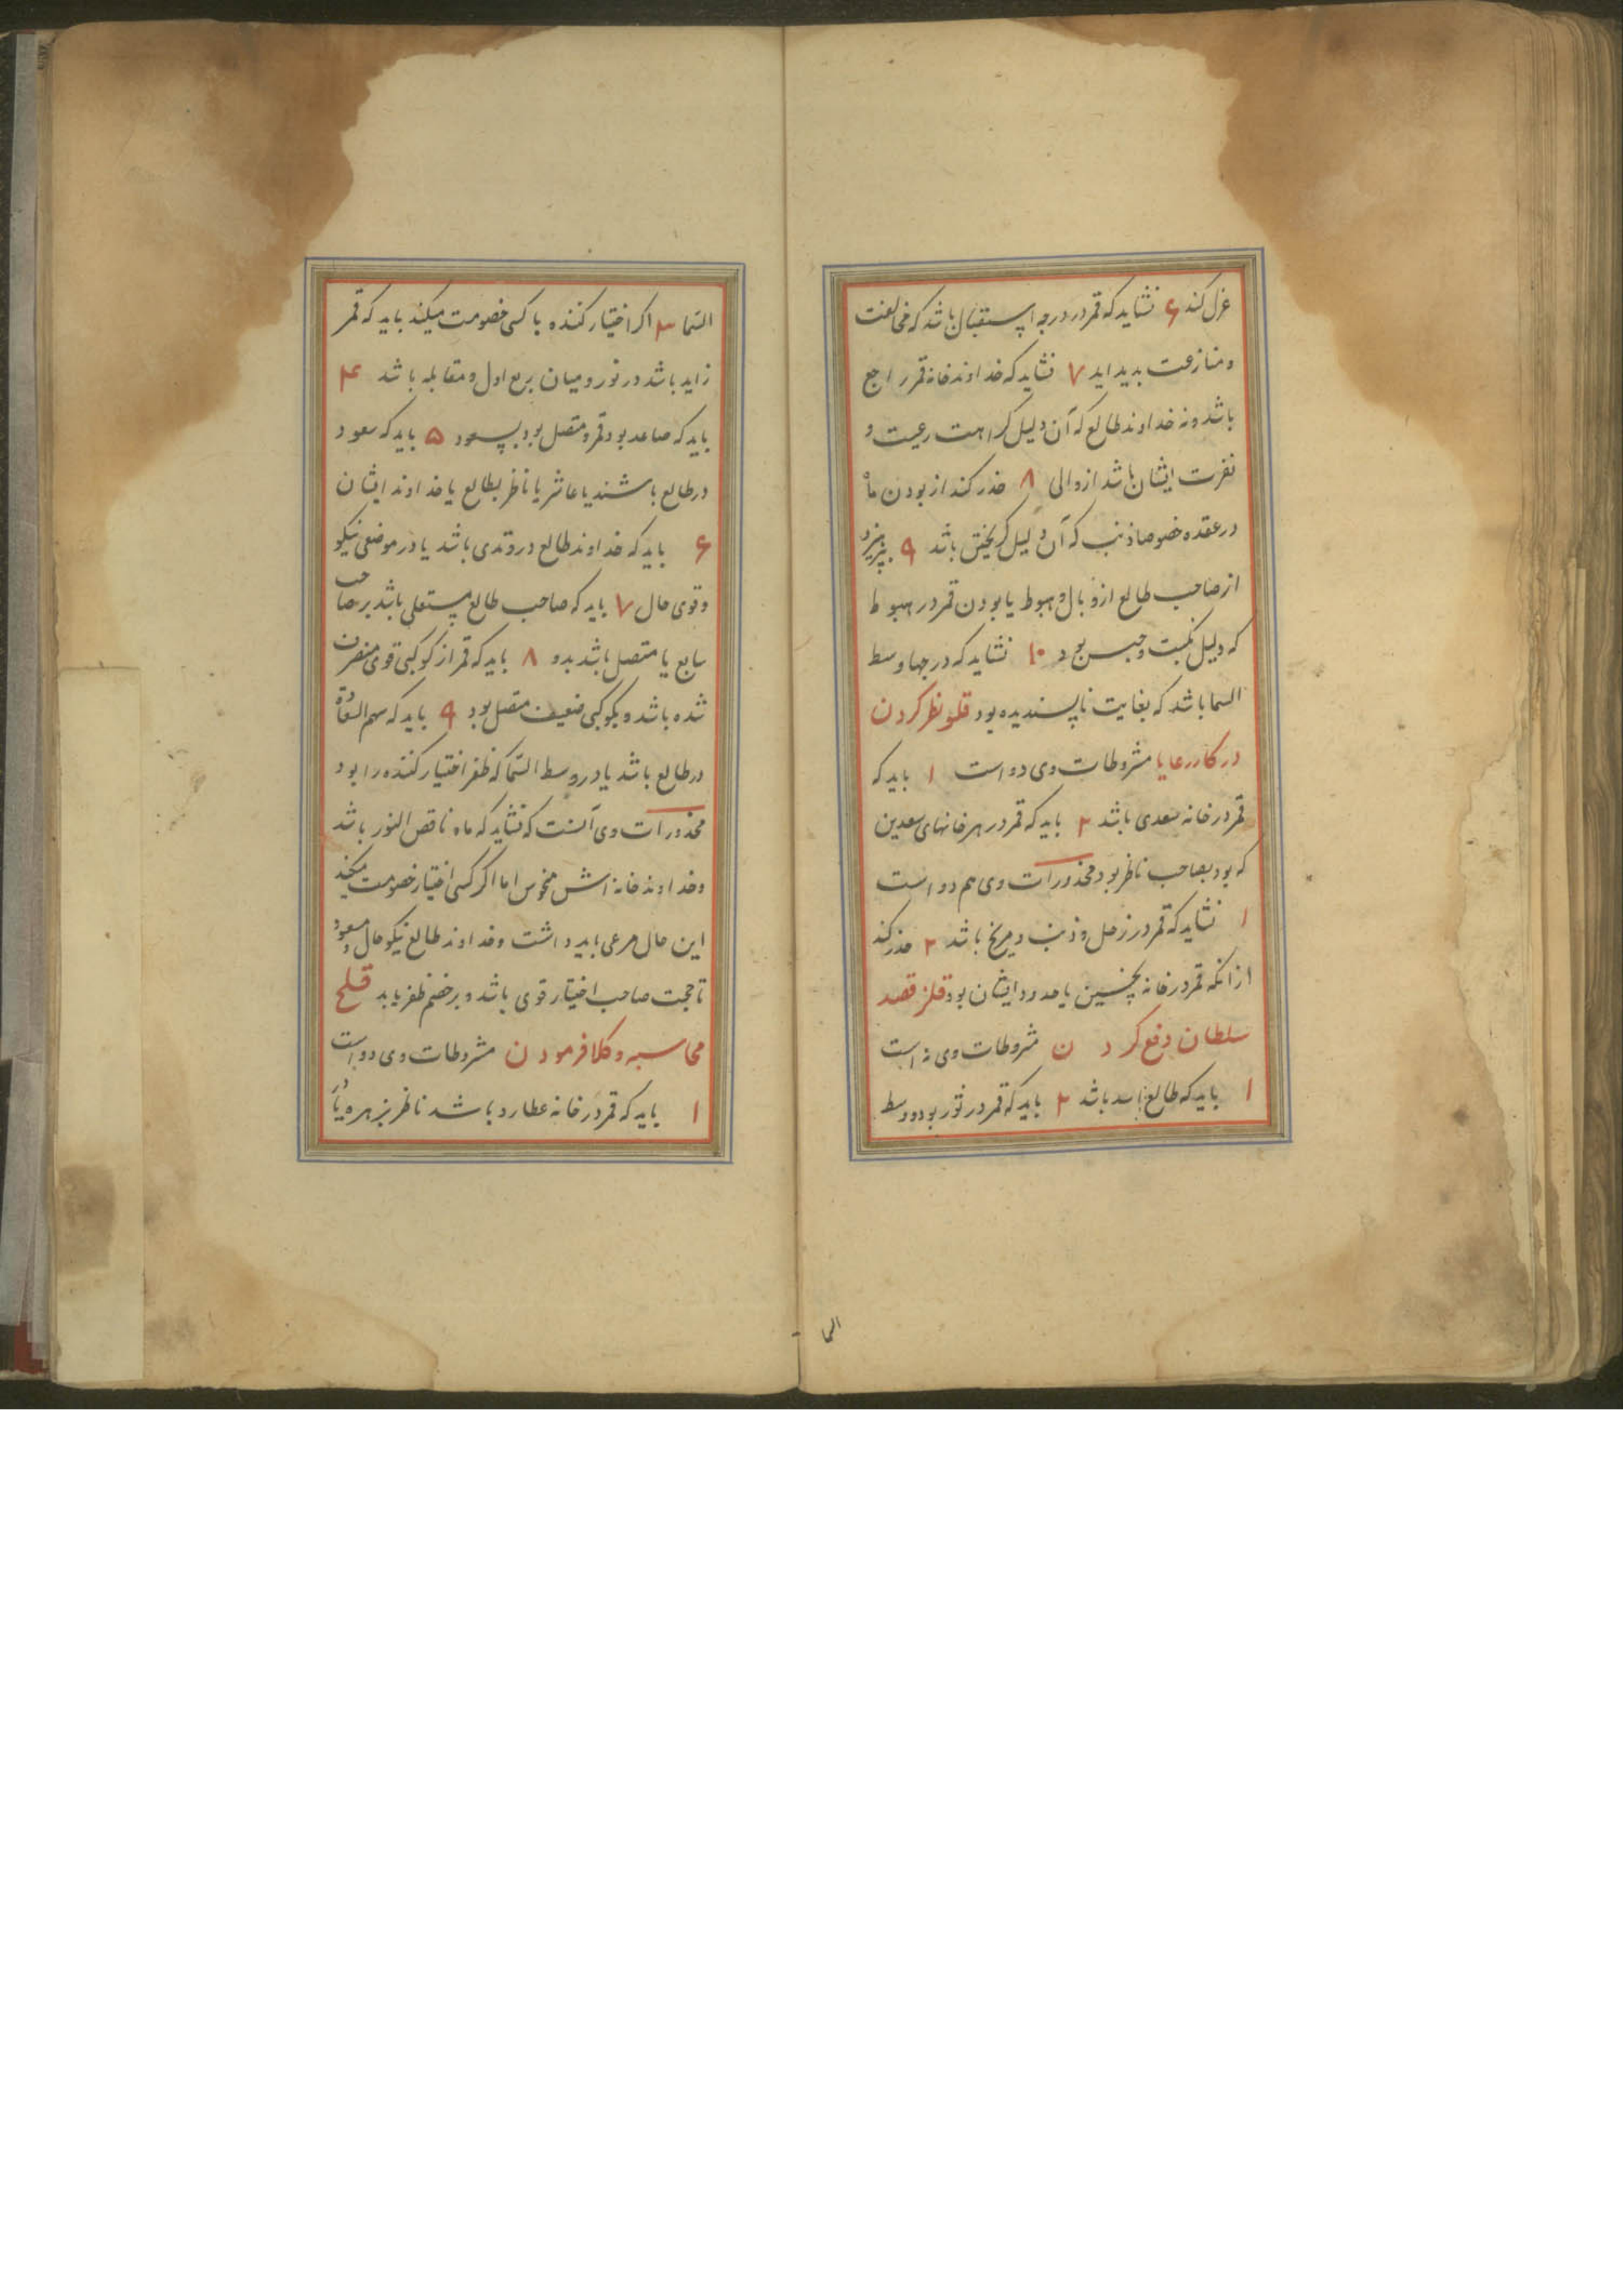 عزل کند ۶ نشاید که قمر در درجه استقبال باشد که مخالفت
و منازعت بدید اید ۷ نشاید که خداوند خانه قمر راجع
باشد و نه خداوند طالع که آن دلیل کراهت رعیت و
نفرت ایشان باشد از والی ۸ حذر کند از بودن ماه
در عقده خصوصا ذنب که آن دلیل کریختن باشد ۹ بپرهیزد
از صاحب طالع از وبال و هبوط یا بودن قمر در هبوط
که دلیل نکبت و حبس بود ۱۰ نشاید که در جها وسط
السما باشد که بغایت ناپسندیده بود قلو نظر کردن
در کار رعایا مشروطات وی دو است ۱ باید که
قمر در خانه سعدی باشد ۲ باید که قمر در هر خانهای سعدین
که بود بصاحب ناظر بود محذورات وی هم دو است
۱ نشاید که قمر در زحل و ذنب و مریخ باشد ۲ حذر کند
از انکه قمر در خانه نحسین یا حدود ایشان بود قلز قصد
سلطان دفع کردن مشروطات وی نه است
۱ باید که طالع اسد باشد ۲ باید که قمر در ثور بود و وسط
السما
السّما ۳ اکر اختیار کننده با کسی خصومت میکند باید که قمر
زاید باشد در نور و میان بربع اول و مقابله باشد ۴
باید که صاعد بود قمر و متصل بود بسعود ۵ باید که سعود
در طالع باشند یا عاشر یا ناظر بطالع یا خداوند ایشان
۶ باید که خداوند طالع در وتدی باشد یا در موضعی نیکو
و قوی حال ۷ باید که صاحب طالع مستعلی باشد بر صاحب
سابع یا متصل باشد بدو ۸ باید که قمر از کوکبی قوی منصرف
شده باشد و بکوکبی ضعیف متصل بود ۹ باید که سهم السعادة
در طالع باشد یا در وسط السّما که ظفر اختیار کننده را بود
محذورات وی آنست که نشاید که ماه ناقص النور باشد
و خداوند خانه اش منحوس اما اکر کسی اختیار خصومت میکند
این حال مرعی باید داشت و خداوند طالع نیکو حال و مسعود
تا حجت صاحب اختیار قوی باشد و بر خصم ظفر یابد قلح
محاسبه وکلا فرمودن مشروطات وی دو است
۱ باید که قمر در خانه عطارد باشد ناظر بزهره یا